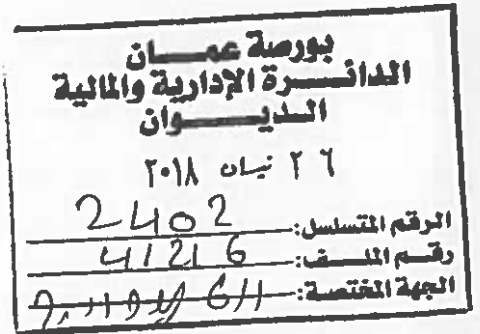 بورصة عمان
الدائرة الإدارية والمالية
الديوان
٢٦ نيسان ٢٠١٨
الرقم المتسلسل: 2402
رقم الملف: 41216
الجهة المختصة: